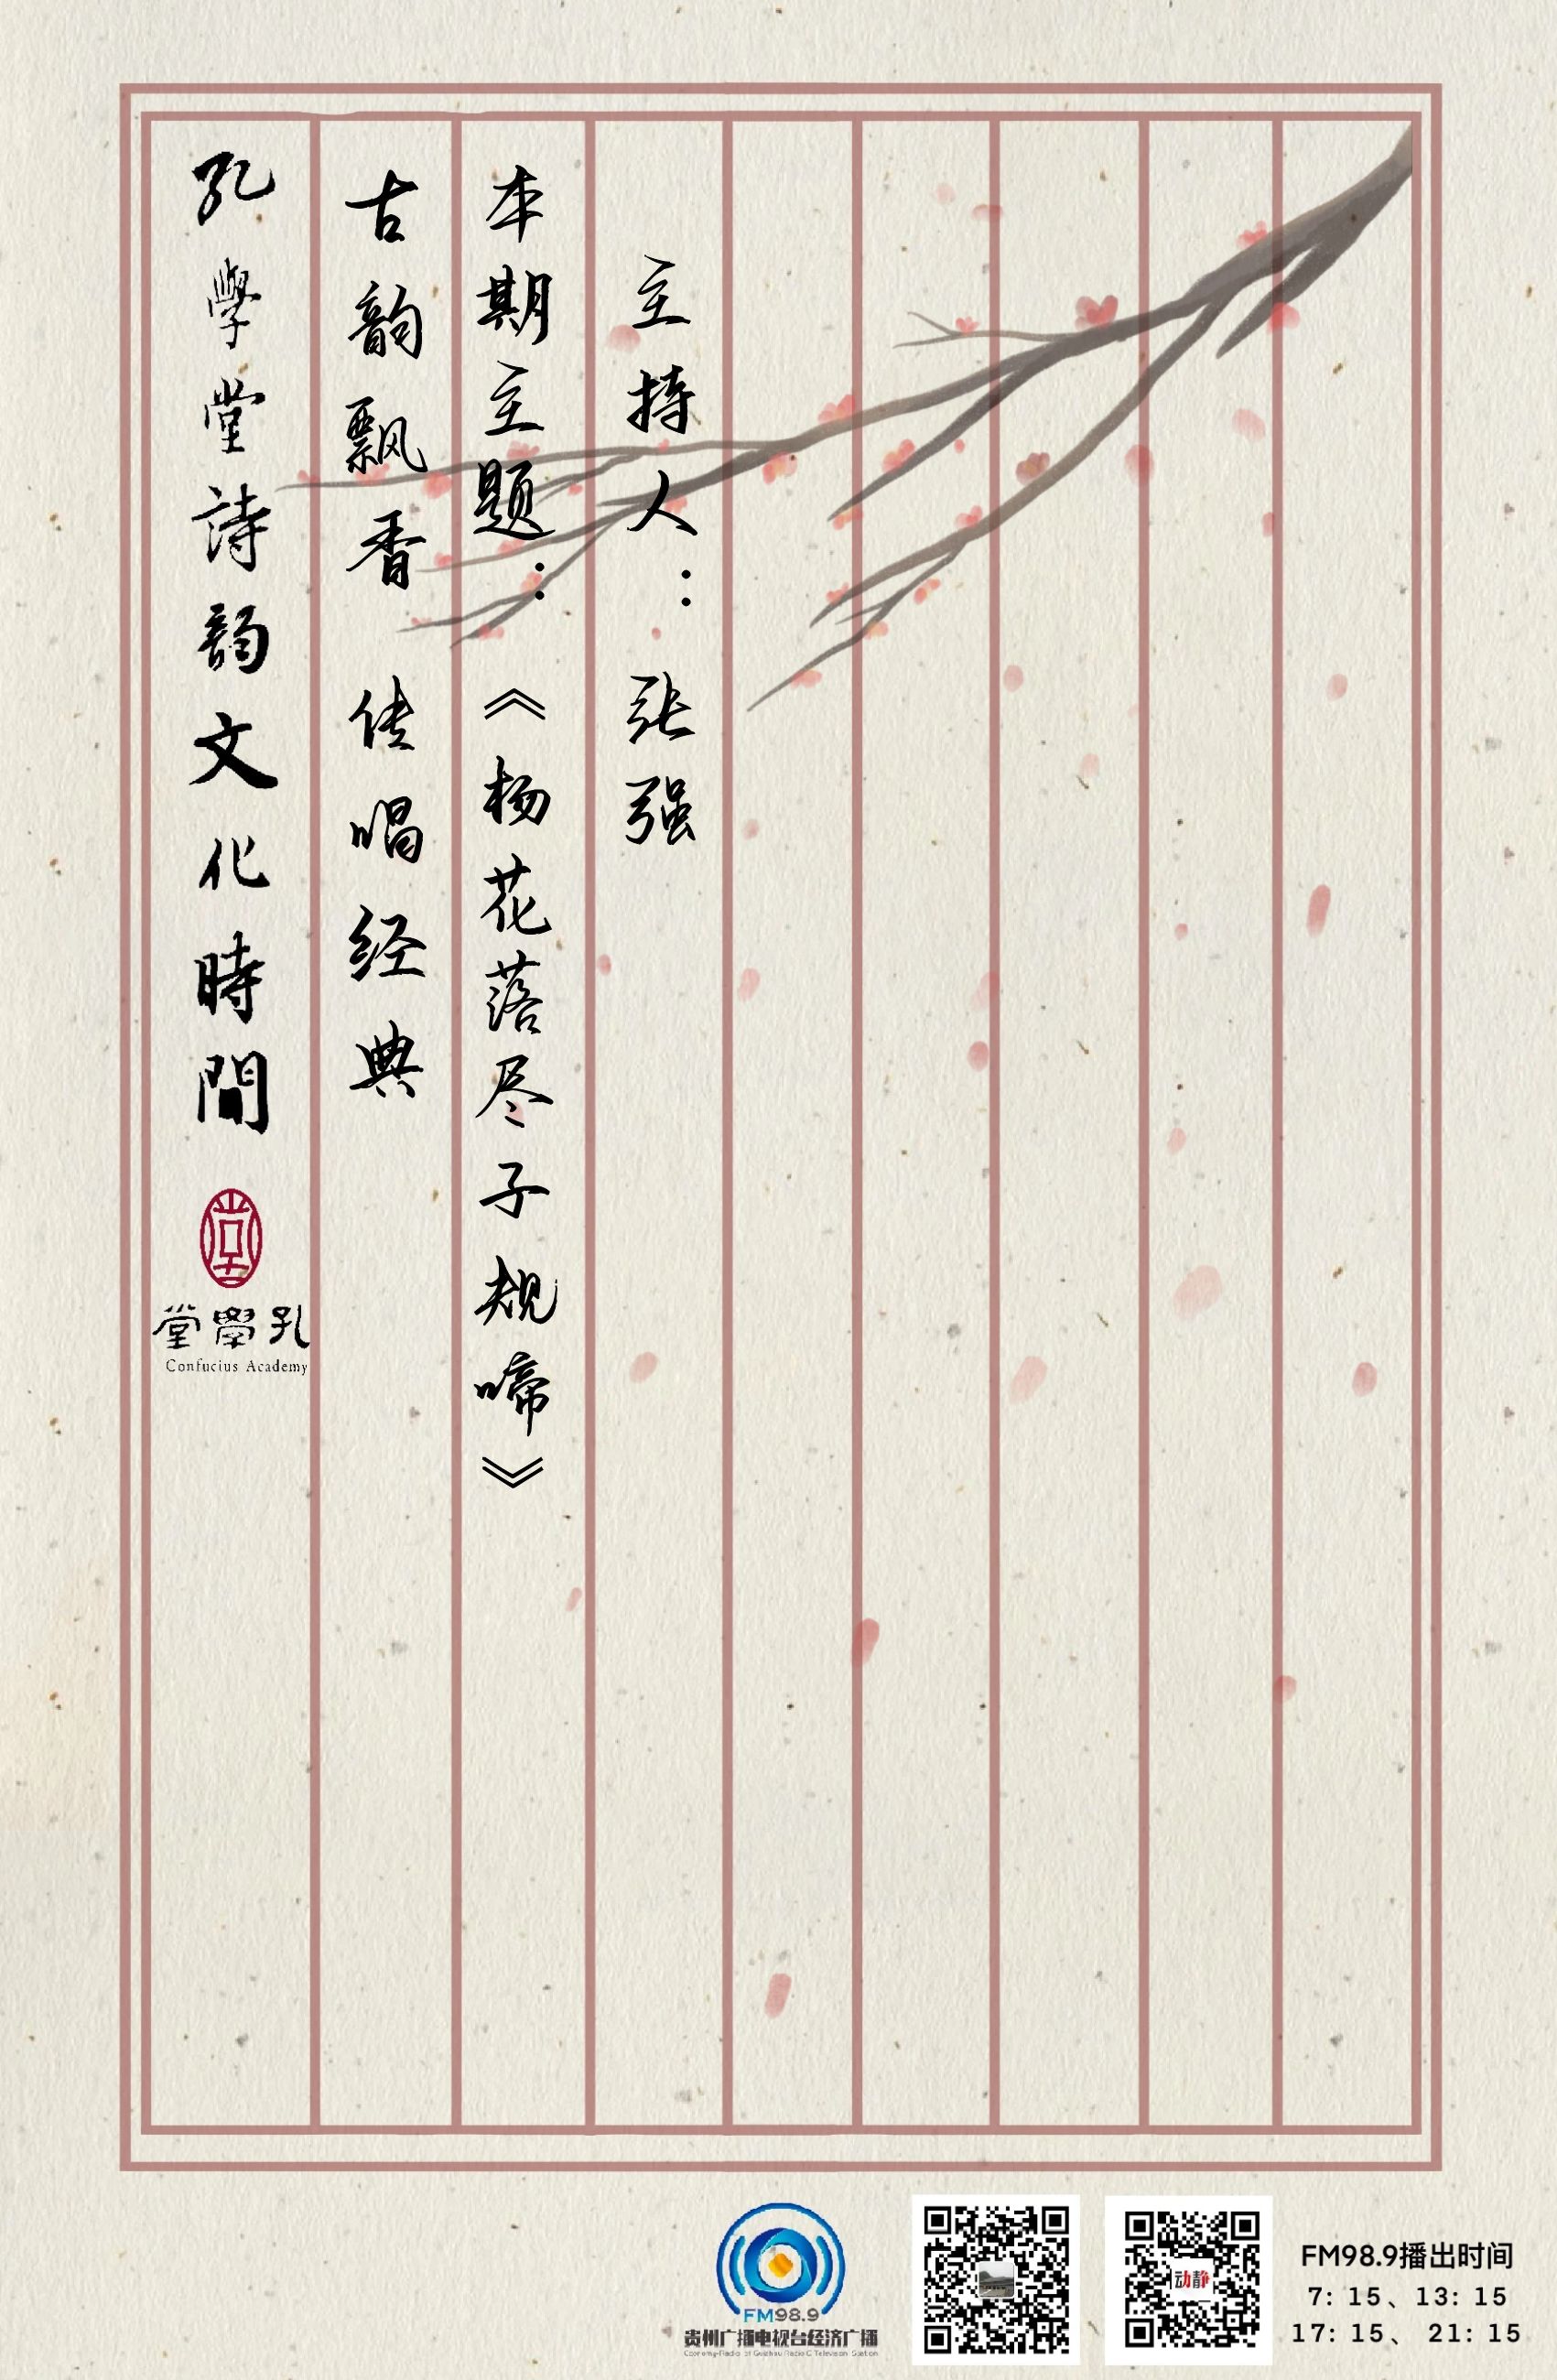 孔學堂詩韵文化時間
孔學堂
Confucius Academy
古韵飘香 传唱经典
本期主题：《杨花落尽子规啼》
主持人：张强
FM98.9
贵州广播电视台经济广播
动静
FM98.9播出时间
7: 15、13: 15
17: 15、 21: 15